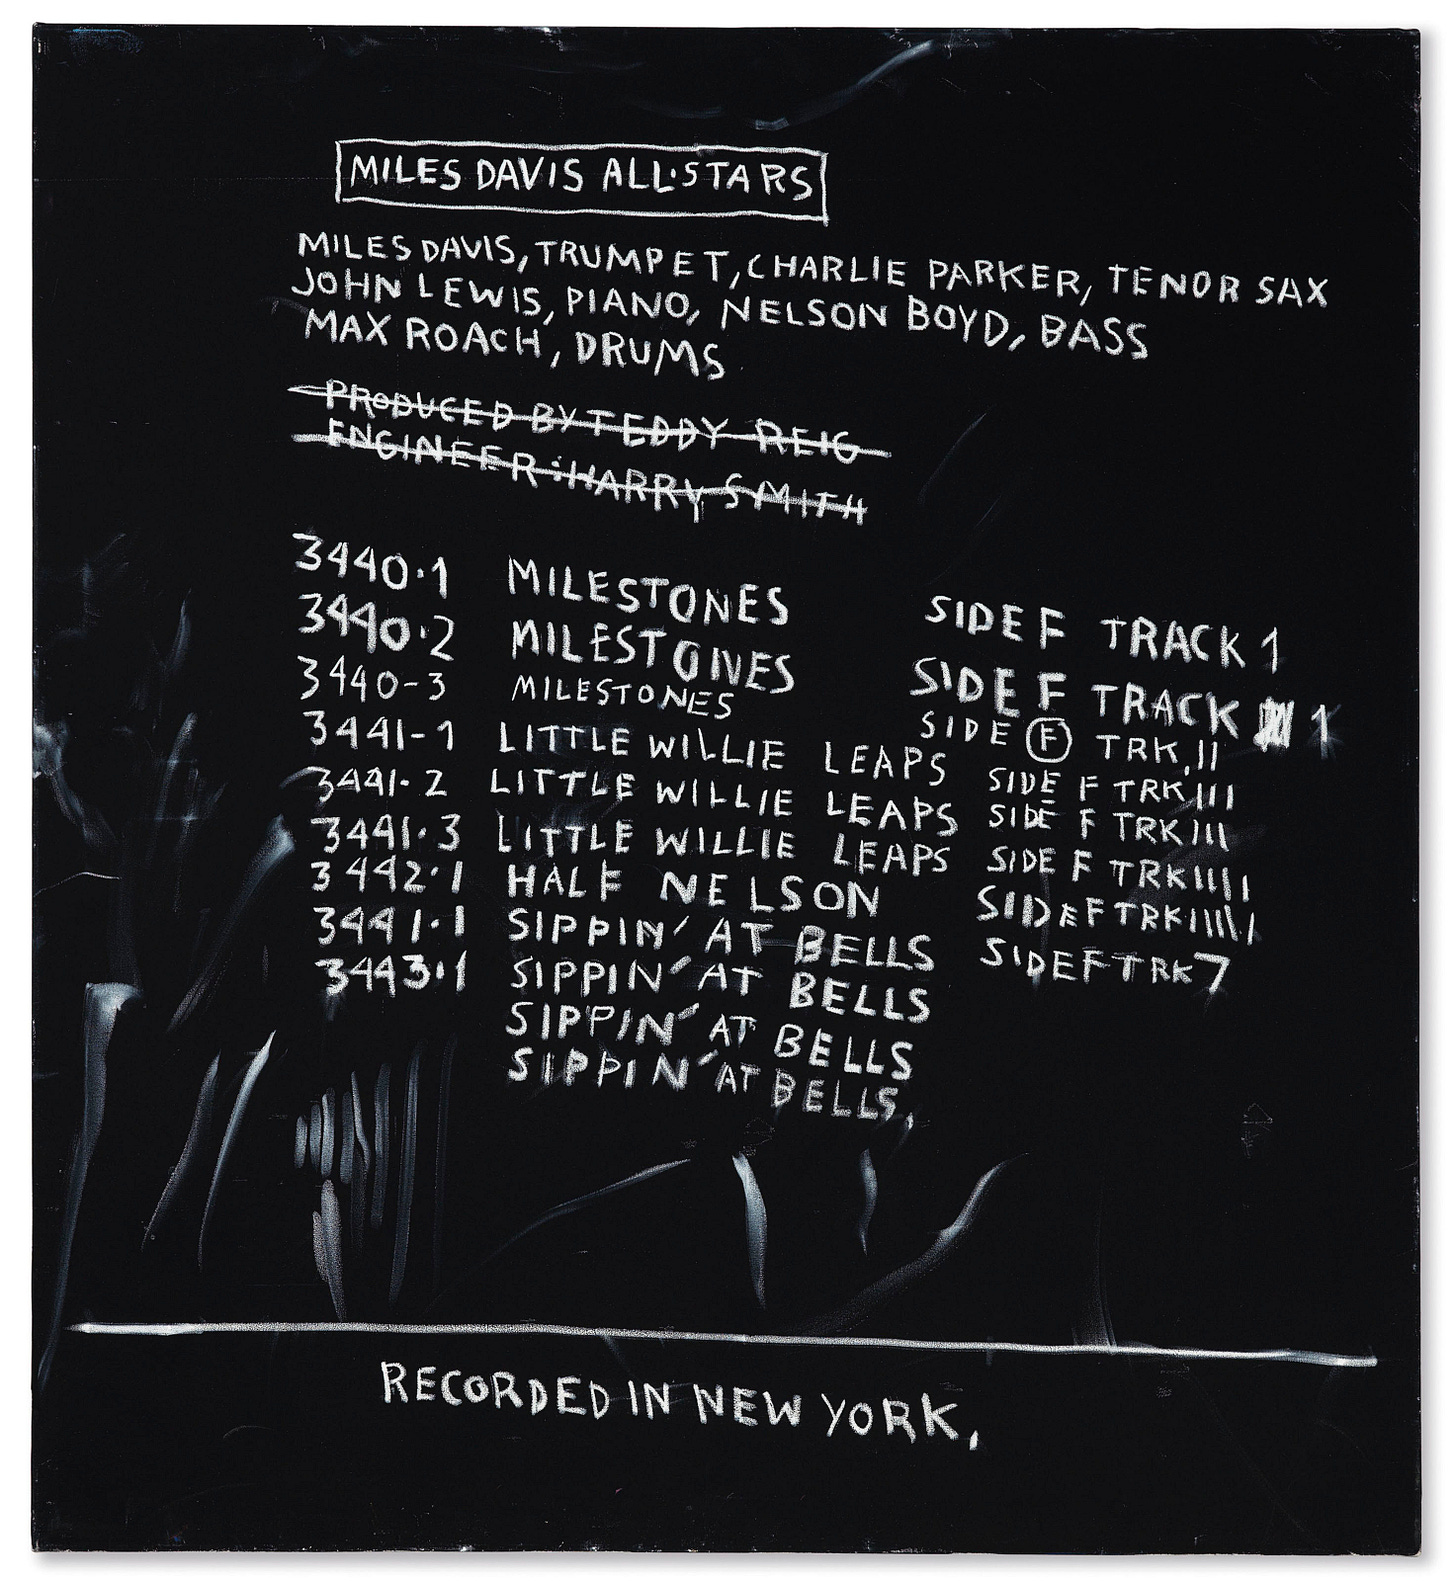 MILES DAVIS ALL·STARS
MILES DAVIS, TRUMPET, CHARLIE PARKER, TENOR SAX
JOHN LEWIS, PIANO, NELSON BOYD, BASS
MAX ROACH, DRUMS
PRODUCED BY TEDDY REIG
ENGINEER:HARRY SMITH
3440·1 MILESTONES SIDE F TRACK 1
3440·2 MILESTONES SIDE F TRACK 1
3440-3 MILESTONES SIDE F TRK.II
3441-1 LITTLE WILLIE LEAPS SIDE F TRK III
3441·2 LITTLE WILLIE LEAPS SIDE F TRK III
3441·3 LITTLE WILLIE LEAPS SIDE F TRK IIIII
3442·1 HALF NELSON SIDE F TRK IIIIII
3441·1 SIPPIN' AT BELLS SIDE F TRK 7
3443·1 SIPPIN' AT BELLS
SIPPIN' AT BELLS
SIPPIN' AT BELLS,
RECORDED IN NEW YORK,